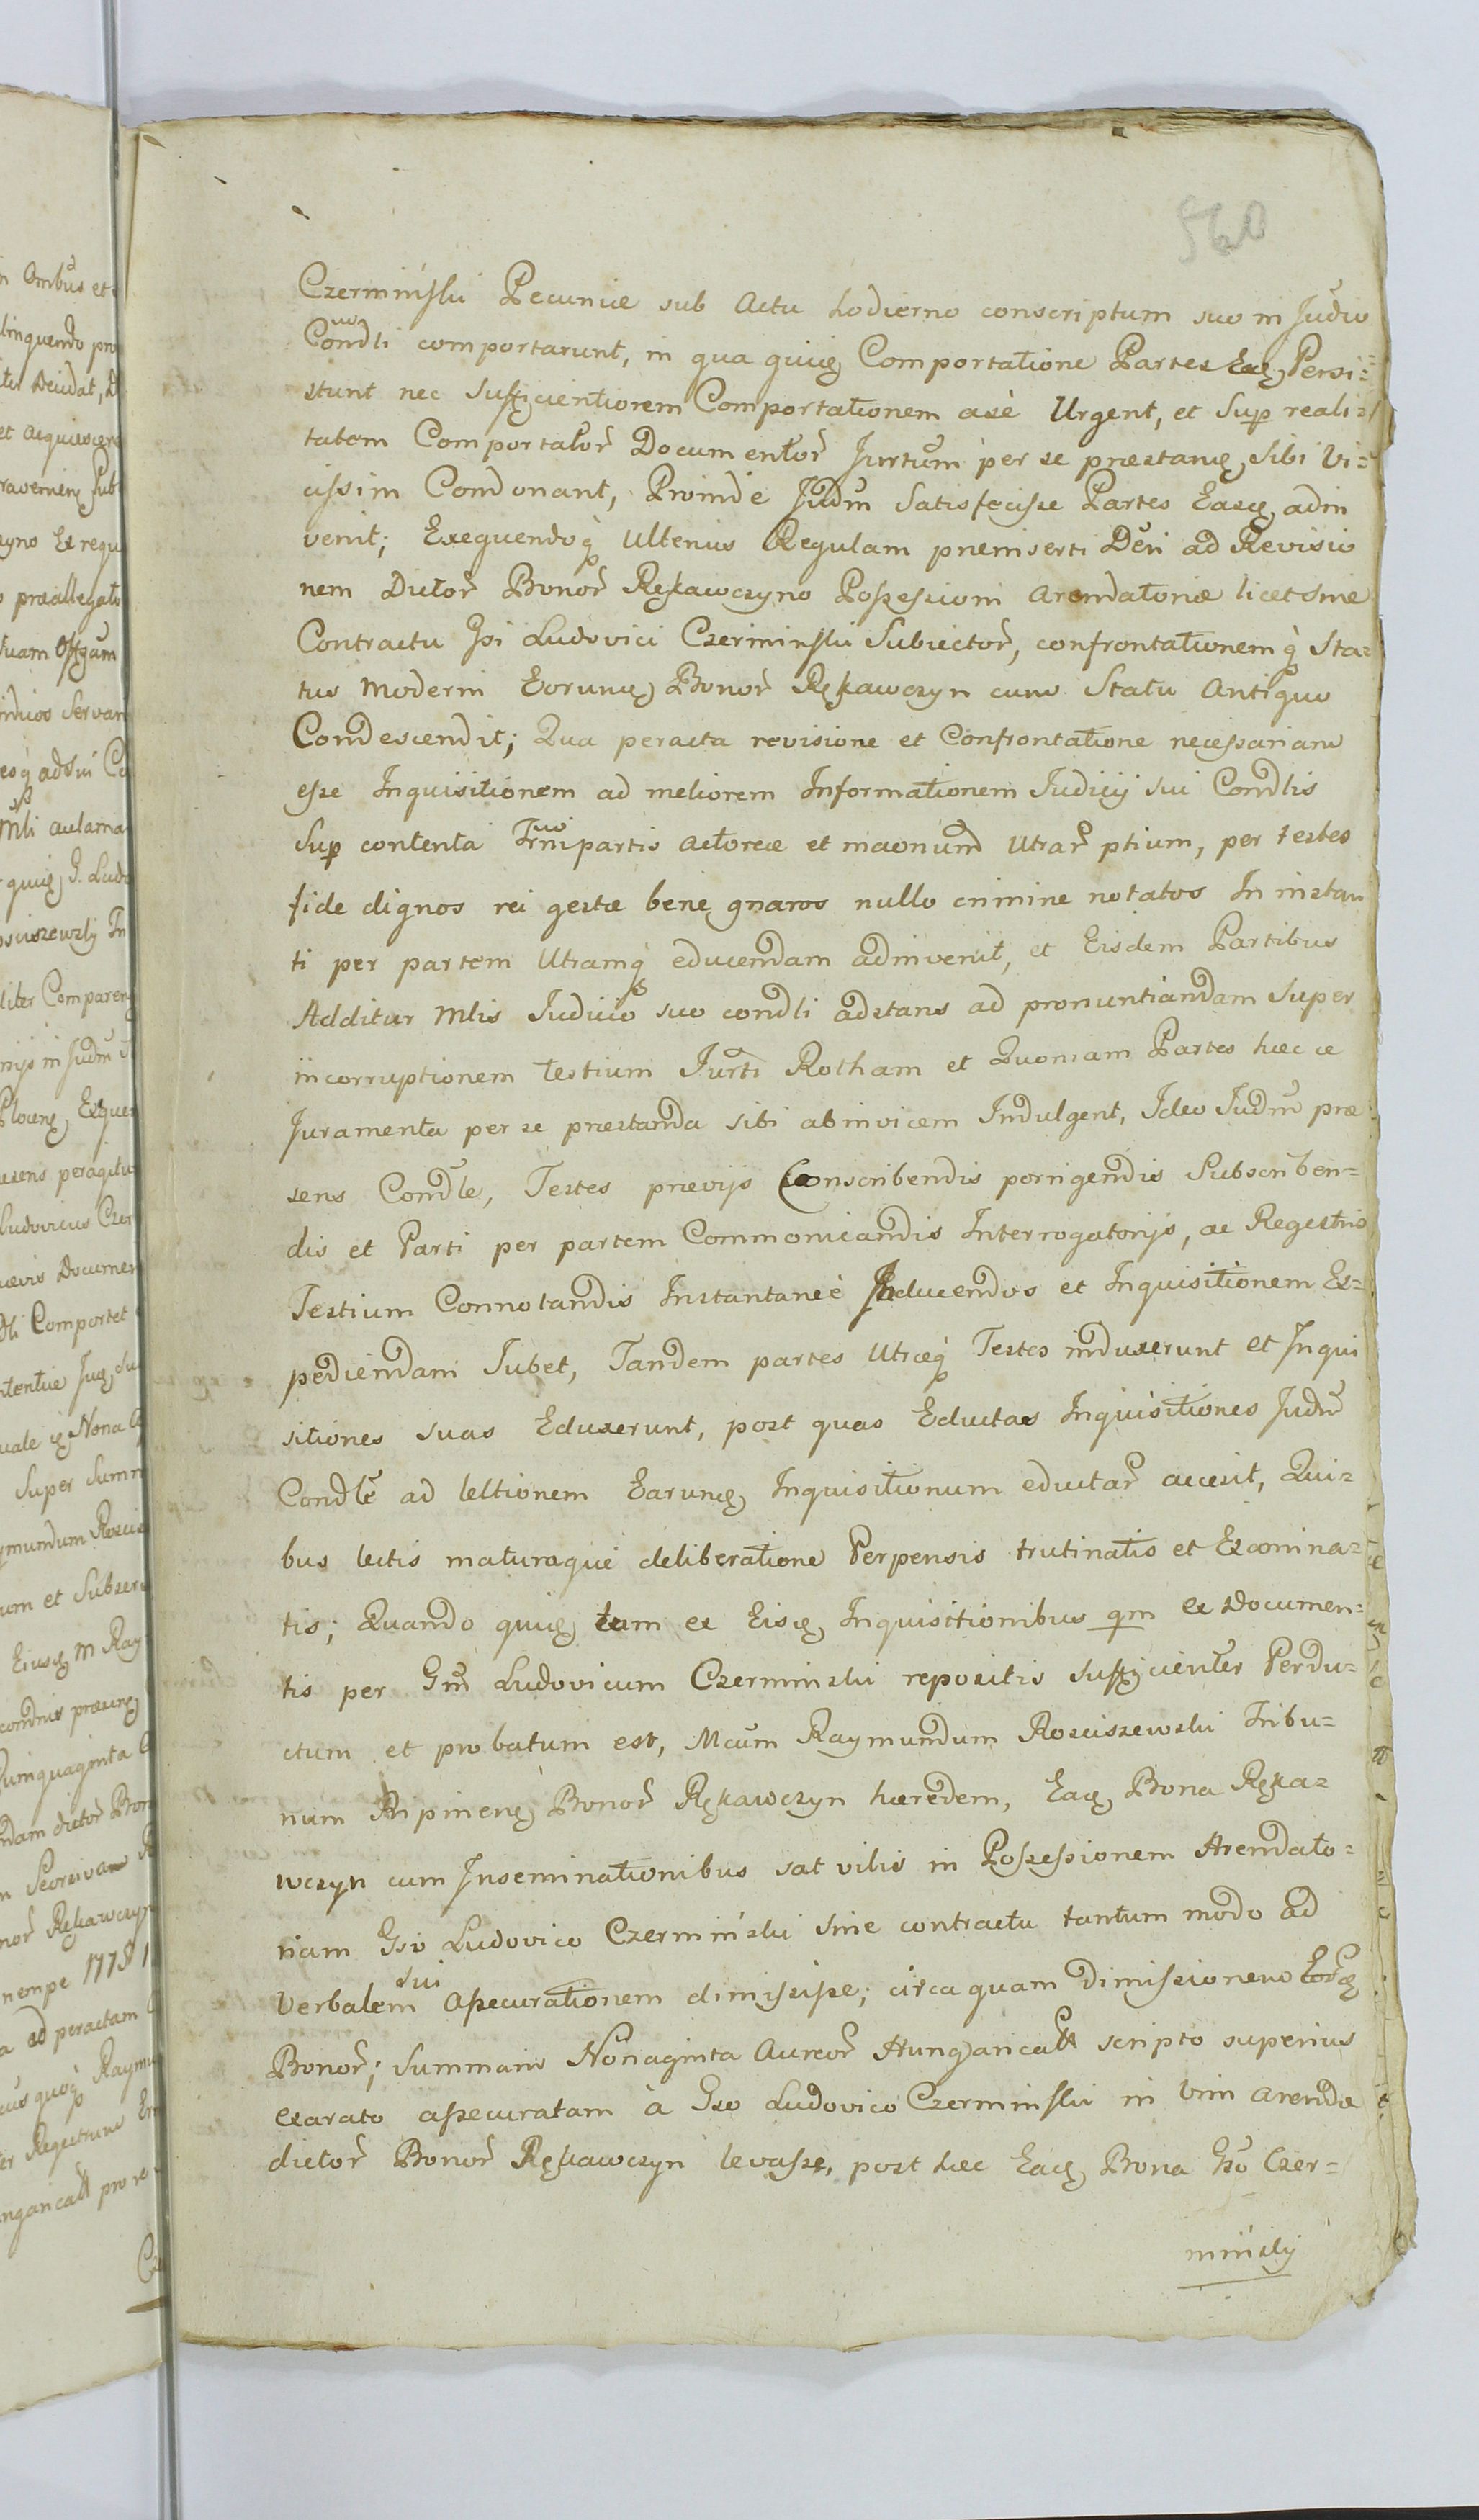 560
Czerminski Pecuniæ sub Actu hodierno conscriptum suo in Judicio
Condli comportarunt, in qua quidē Comportatione Partes Eaedē Persi=
stunt nec Sufficientiorem Comportationem a se Urgent, et Sup reali=
tatem Comportator̃ Documentor̃ Jurtum per se præstandū Sibi Vi=
cissim Condonant, Proinde Judm Satisfecisse Partes Easdē adin
venit; Exequendoq̀ Ulterius Regulam præinserti Dēti ad Revisio
nem Dictor̃ Bonor̃ Rękawczyno Possessioni Arendatoriæ licet sine
Contractu Gsi Ludovici Czerminski Subiector̃, confrontationemq̀ Sta=
tus Moderni Eorundē Bonor̃ Rękawczyn cum Statu Antiquo
Condescendit; Qua peracta revisione et Confrontatione necessariam
esse Inquisitionem ad meliorem Informationem Judicij sui Condlis
Sup contenta partis Actoreæ et Utrar̃ ptium, per testes
fide dignos rei gestæ bene gnaros nullo crimine notatos In instan
ti per partem Utramq̀ educendam adinvenit, et Eisdem Partibus
Additur Mlis Judicio suo condli adstans ad pronuntiandam Super
incorruptionem testium Jurti Rotham et Quoniam Partes hæcce
Juramenta per se præstanda sibi abinvicem Indulgent, Ideo Judm præ
sens Condle, Testes prævijs Conscribendis porrigendis Subscriben=
dis et Parti per partem Commonicandis Interrogatorijs, ac Regestris
Testium Connotandis Instantaneè Inducendos et Inquisitionem Ex=
pediendam Jubet, Tandem partes Utræq̀ Testes induxerunt et Inqui
sitiones suas Eduxerunt, post quas Eductas Inquisitiones Judm
Condle ad lectionem Earundē Inquisitionum eductar̃ accessit, Qui=
bus lectis maturaque deliberatione Perpensis trutinatis et Examina=
tis; Quando quidē tam ex Eisdē Inquisitionibus qm ex Documen=
tis per Gm Ludovicum Czerminski repositis sufficienter Perdu=
ctum et probatum est, Mcum Raymundum Rosciszewski Tribu=
num Rypinenē Bonor̃ Rękawczyn hæredem, Eadē Bona Ręka=
wczyn cum Inseminationibus sat vilis in Possessionem Arendato=
riam Gso Ludovico Czerminski sine contractu tantum modo ad
Verbalem sui Assecurationem dimisisse; circa quam Dimissionem Eordē
Bonor̃; Summam Nonaginta Aureor̃ Hungaricall scripto superius
exarato assecuratam à Gso Ludovico Czerminski in Vim Arendæ
dictor̃ Bonor̃ Rękawczyn levasse, post hæc Eadē Bona Gso Czer=
minsky